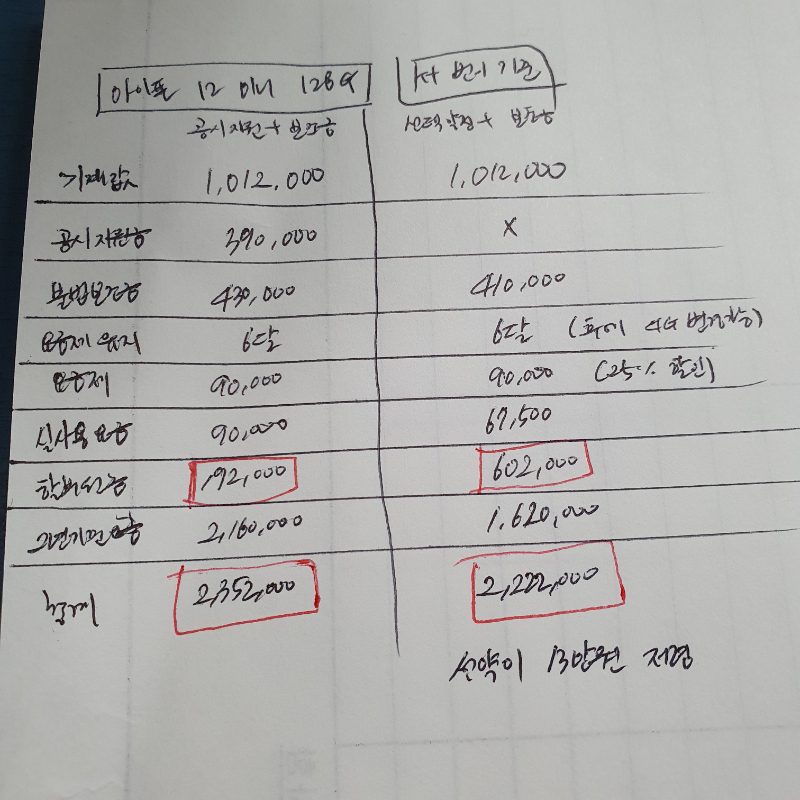 아이폰 12 미니 128G
S사 번이 기준
공시지원 + 보조금
선택약정 + 보조금
기계값 1,012,000 1,012,000
공시지원금 390,000 X
불법보조금 430,000 410,000
요금제 유지 6달 6달 (후에 4G 변경가능)
요금제 90,000 90,000 (25% 할인)
실사용요금 90,000 67,500
할부원금 192,000 602,000
2년기본요금 2,160,000 1,620,000
2,352,000 2,222,000
선약이 13만원 저렴